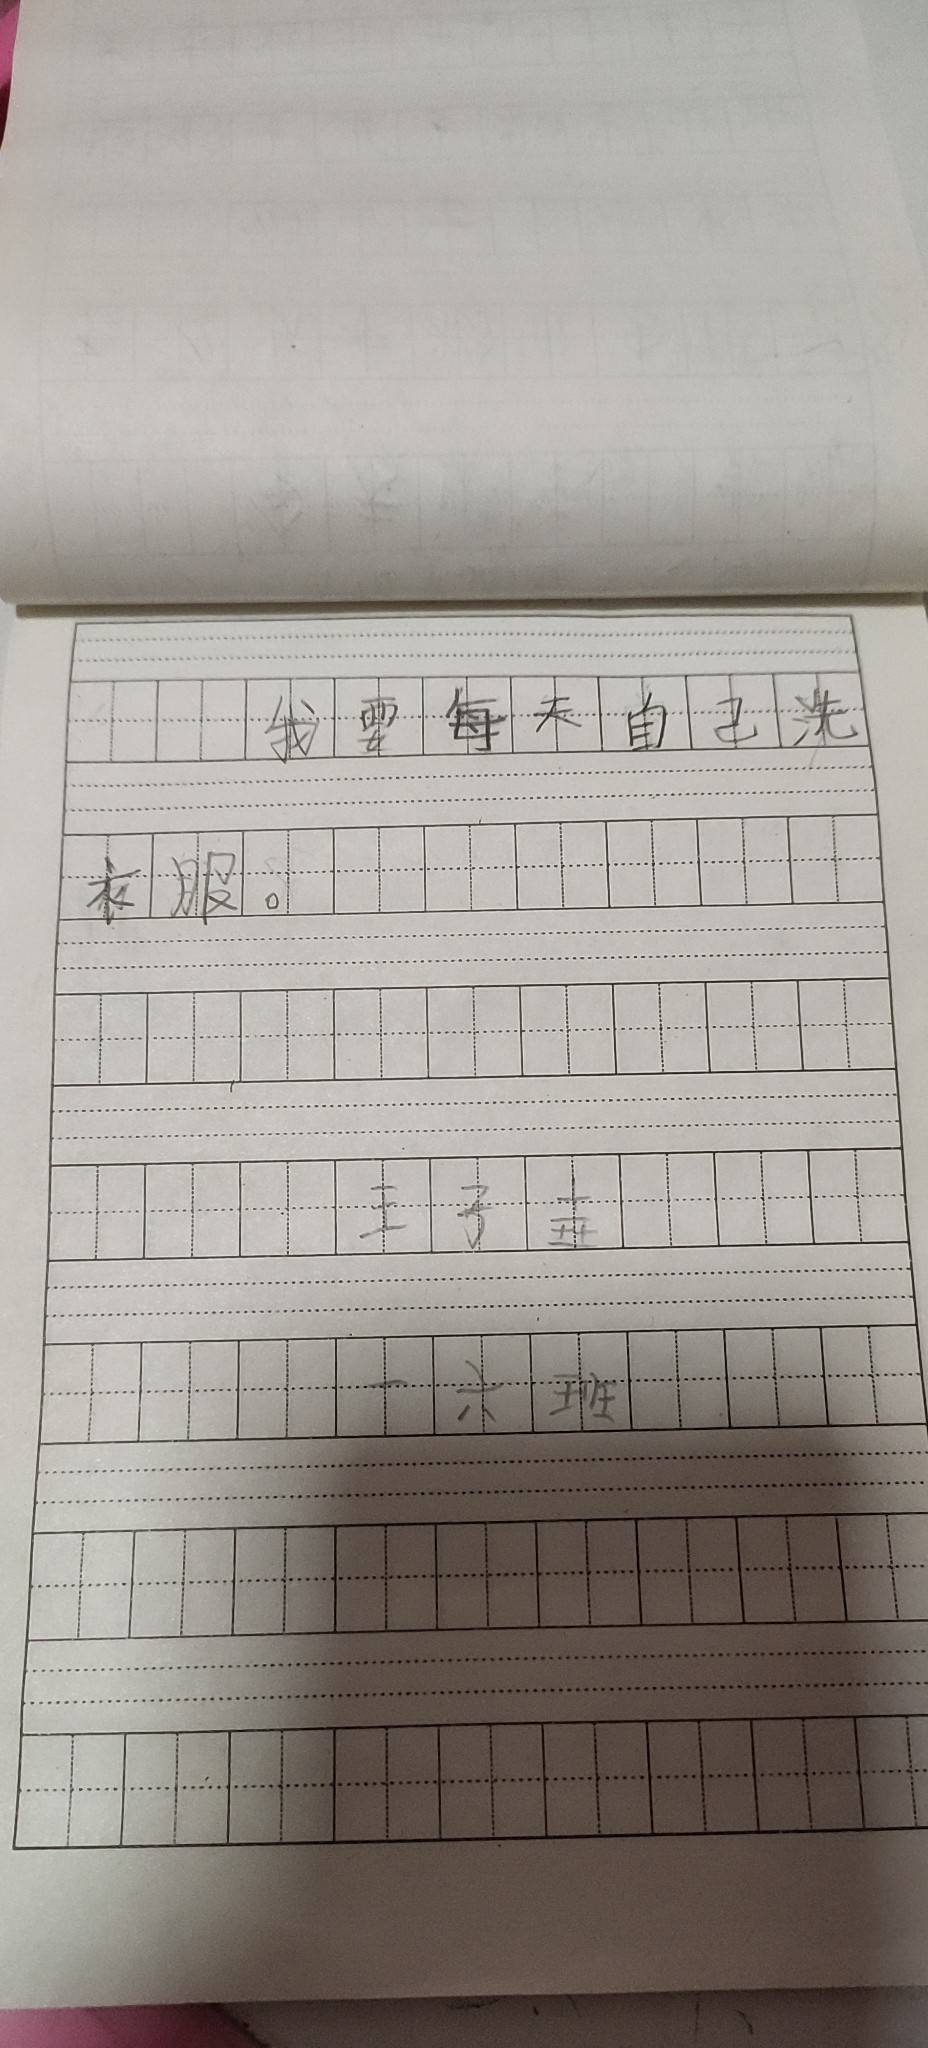 我要每天自己洗
衣服。
王子
一六班